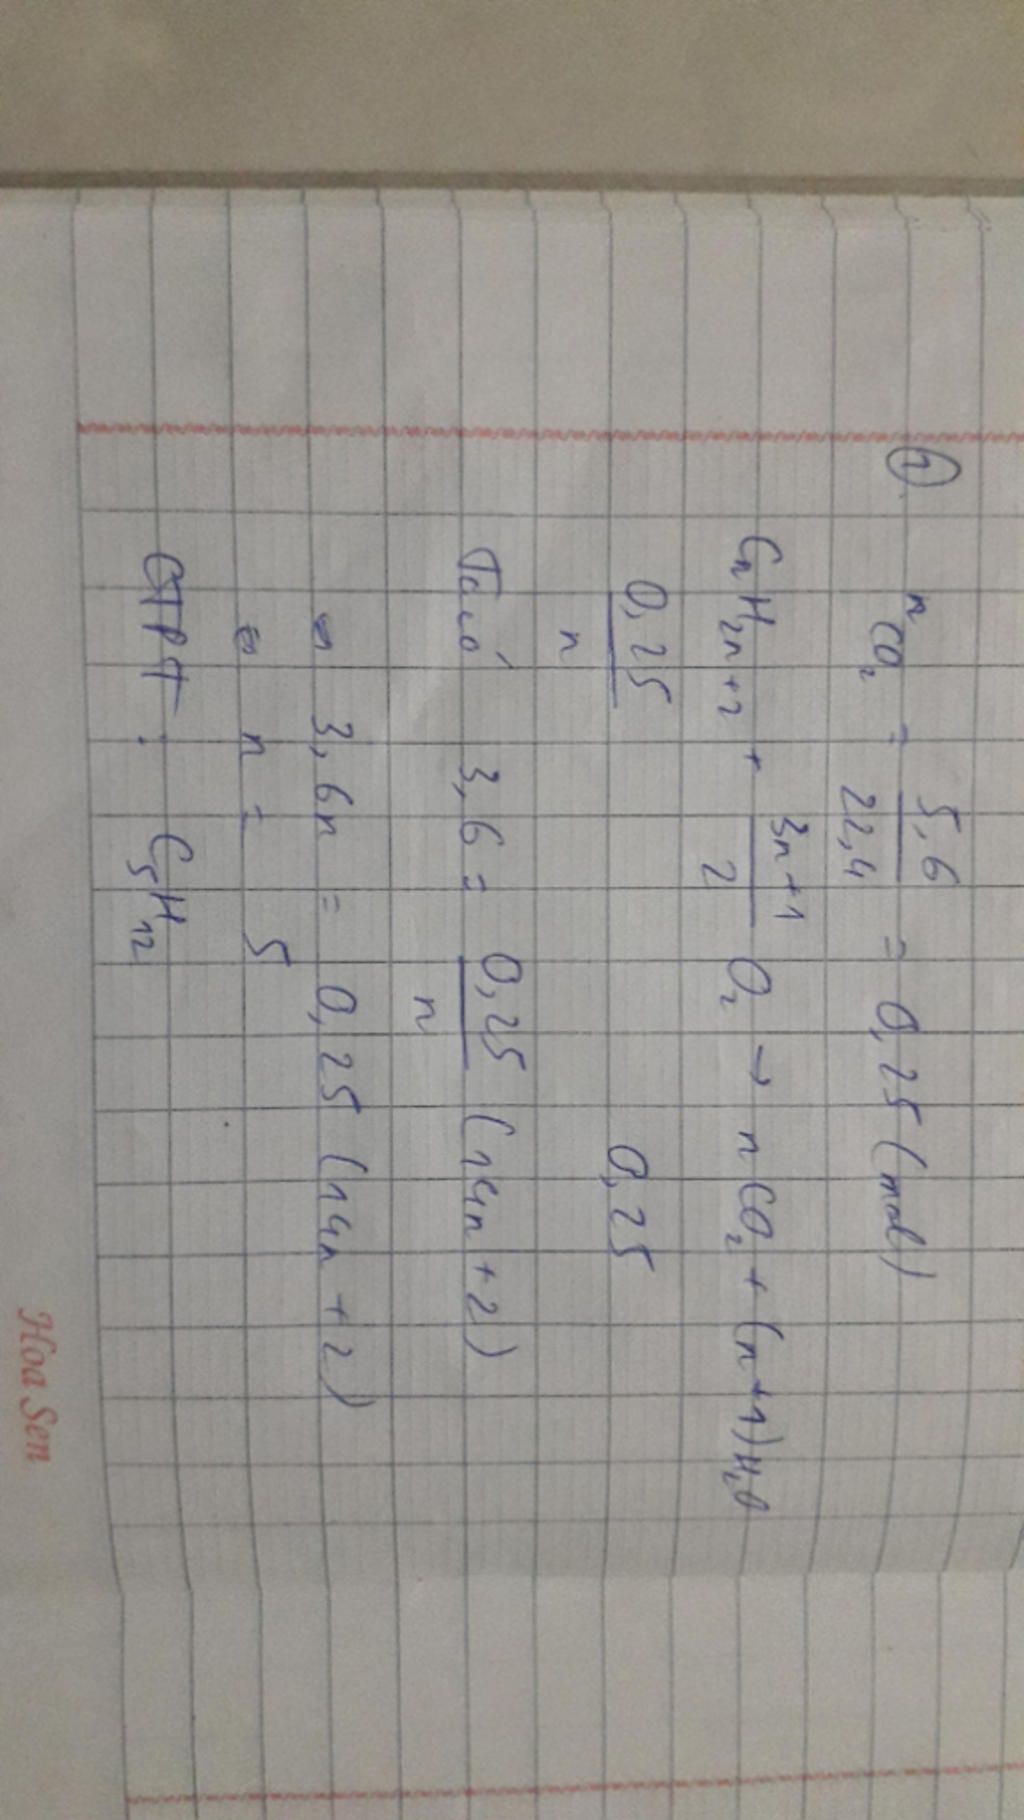 ② nCO₂ = 5,6/22,4 = 0,25 (mol)
CnH2n+2 + (3n+1)/2 O₂ → nCO₂ + (n+1)H₂O
0,25/n 0,25
Ta có 3,6 = 0,25/n (14n + 2)
⇔ 3,6n = 0,25 (14n + 2)
⇔ n = 5
CTPT : C₅H₁₂
Hoa Sen